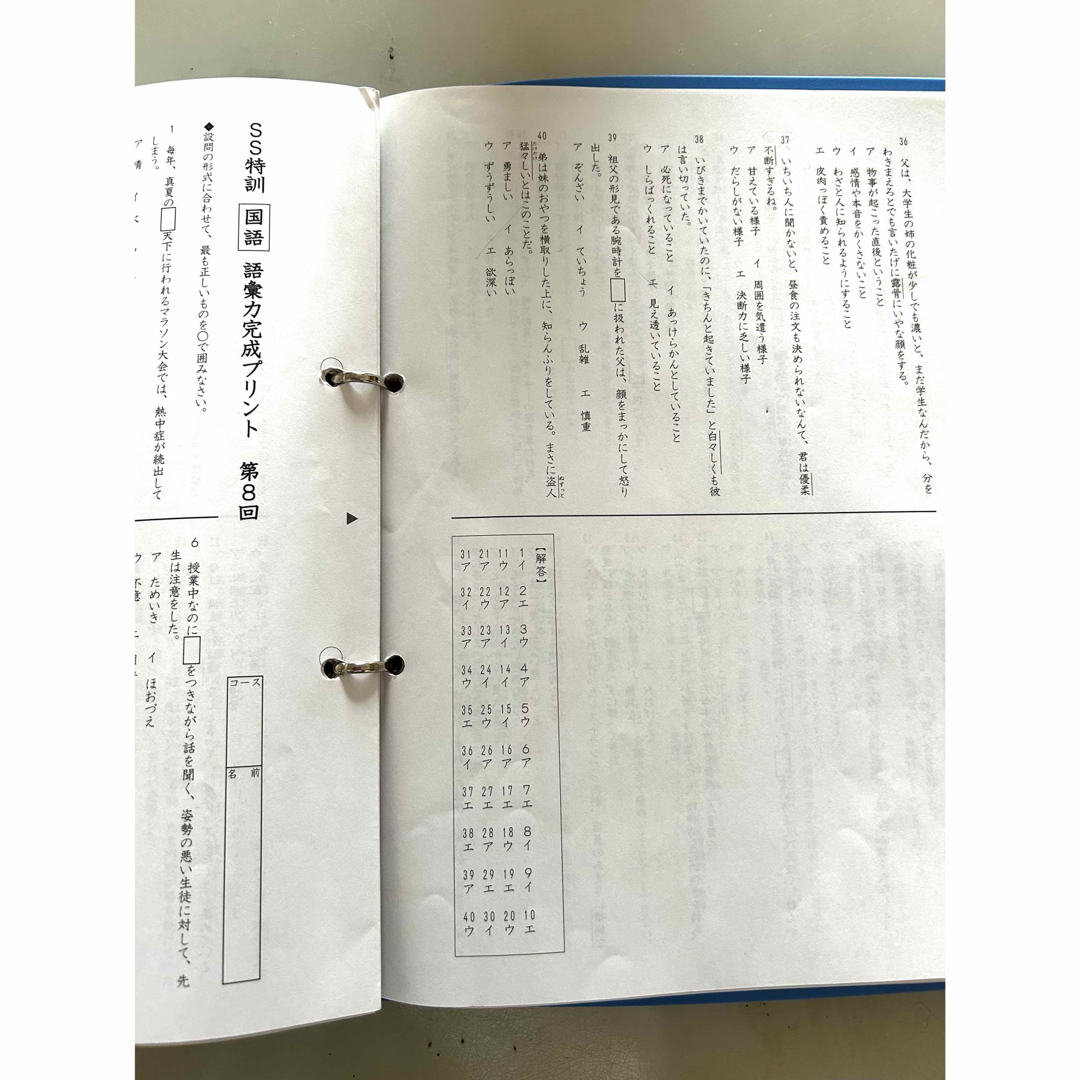 36 父は、大学生の姉の化粧が少しでも濃いと、まだ学生なんだから、分を
わきまえろとでも言いたげに露骨にいやな顔をする。
ア 物事が起こった直後ということ
イ 感情や本音をかくさないこと
ウ わざと人に知られるようにすること
エ 皮肉っぽく責めること
37 いちいち人に聞かないと、昼食の注文も決められないなんて、君は優柔
不断すぎるね。
ア 甘えている様子 イ 周囲を気遣う様子
ウ だらしがない様子 エ 決断力に乏しい様子
38 いびきまでかいていたのに、「きちんと起きていました」と白々しくも彼
は言い切っていた。
ア 必死になっていること イ あっけらかんとしていること
ウ しらばっくれること エ 見え透いていること
39 祖父の形見である腕時計を□に扱われた父は、顔をまっかにして怒り
出した。
ア ぞんざい イ ていちょう ウ 乱雑 エ 慎重
40 弟は妹のおやつを横取りした上に、知らんふりをしている。まさに盗人
ぬすっと
猛々しいとはこのことだ。
たけだけ
ア 勇ましい イ あらっぽい
ウ ずうずうしい エ 欲深い
【解答】
1イ 2エ 3ウ 4ア 5ウ 6ア 7エ 8イ 9イ 10エ
11ウ 12ア 13イ 14イ 15イ 16ア 17エ 18ウ 19エ 20ウ
21ア 22ウ 23ア 24イ 25ウ 26ア 27エ 28ア 29エ 30イ
31ア 32イ 33ア 34ウ 35エ 36イ 37エ 38エ 39ア 40ウ
SS特訓 国語 語彙力完成プリント 第8回
コース
名前
◆設問の形式に合わせて、最も正しいものを〇で囲みなさい。
1 毎年、真夏の□天下に行われるマラソン大会では、熱中症が続出して
しまう。
ア 晴 イ
6 授業中なのに□をつきながら話を聞く、姿勢の悪い生徒に対して、先
生は注意をした。
ア ためいき イ ほおづえ